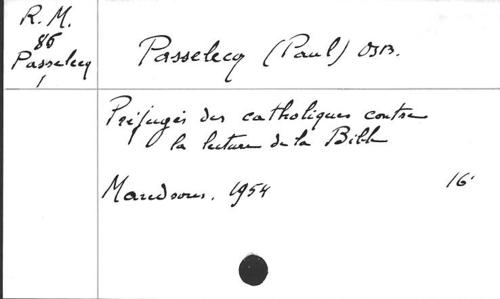 R. M.
86
Passelecq
1
Passelecq (Paul) OSB.
Préjugés des catholiques contre
la lecture de la Bible
Maredsous. 1954
16°